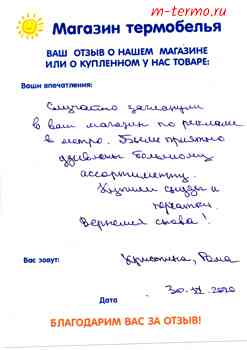 m-termo.ru
Магазин термобелья
ВАШ ОТЗЫВ О НАШЕМ МАГАЗИНЕ
ИЛИ О КУПЛЕННОМ У НАС ТОВАРЕ:
Ваши впечатления:
Случайно заглянули
в ваш магазин по рекламе
в метро. Были приятно
удивлены большому
ассортименту.
Купили сразу и
перчатки.
Вернемся снова!
Вас зовут:
Кристина, Рома
30. 2020
Дата
БЛАГОДАРИМ ВАС ЗА ОТЗЫВ!